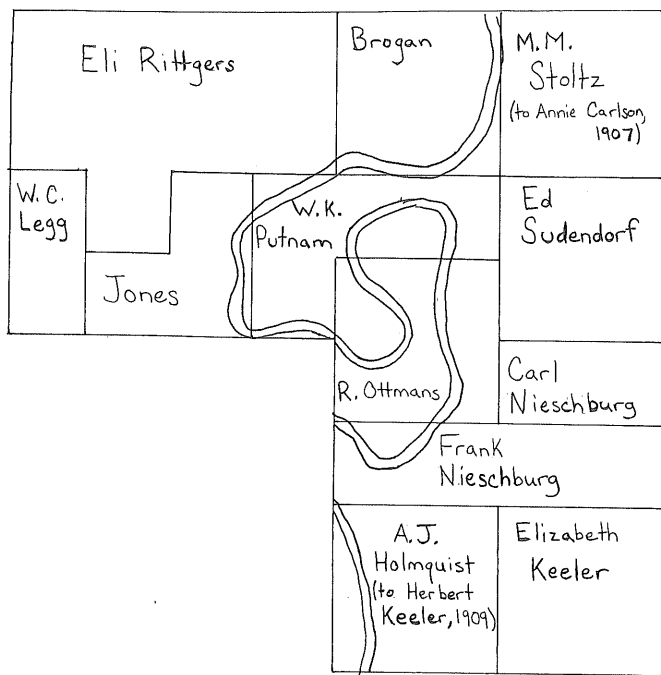 Eli Rittgers
Brogan
M.M.
Stoltz
(to Annie Carlson,
1907)
W.C.
Legg
Jones
W.K.
Putnam
Ed
Sudendorf
R. Ottmans
Carl
Nieschburg
Frank
Nieschburg
A.J.
Holmquist
(to Herbert
Keeler, 1909)
Elizabeth
Keeler